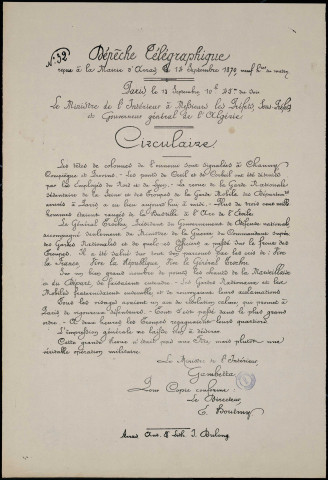 N° 32
Dépêche Télégraphique
reçue à la Mairie d'Arras le 14 Septembre 1870, neuf h. du matin
Paris le 13 Septembre, 10h 45m du soir
Le Ministre de l'Intérieur à Messieurs les Préfets, Sous-Préfets
et Gouverneur général de l'Algérie
Circulaire
Les têtes de colonnes de l'ennemi sont signalées à Chauny,
Compiègne et Provins. Les ponts de Creil et de Corbeil ont été détruits
par les Employés du Nord et de Lyon. La revue de la Garde Nationale
sédentaire de la Seine et des Troupes de la Garde Mobile des Départements
envoyés à Paris a eu lieu aujourd'hui à midi. Plus de trois cent mille
hommes étaient rangés de la Bastille à l'Arc de l'Etoile.
Le Général Trochu, Président du Gouvernement de Défense nationale,
accompagné du Ministre de la Guerre, du Commandant supérieur
des Gardes Nationales et de Officiers a passé devant le front des
troupes. Il a été salué sur tout son parcours par les cris de : Vive
la France, Vive la République, Vive le Général Trochu.
Sur un bien grand nombre de points les chants de la Marseillaise
et du Départ, se faisaient entendre. Les Gardes Nationaux et les
Mobiles fraternisaient ensemble et de acclamations
Tous les visages avaient un air de résolution calme, qui promet à
Paris de vigoureux défenseurs. Tout s'est passé dans le plus grand
ordre. A heures les troupes regagnaient leurs quartiers.
L'impression générale ne laisse rien à désirer.
Cette grande revue n'était pas une fête mais plutôt une
véritable opération militaire.
Le Ministre de l'Intérieur,
Gambetta
Pour Copie conforme
Le Directeur,
E. Boutmy
Arras Aut. & Lith. J. Dulong